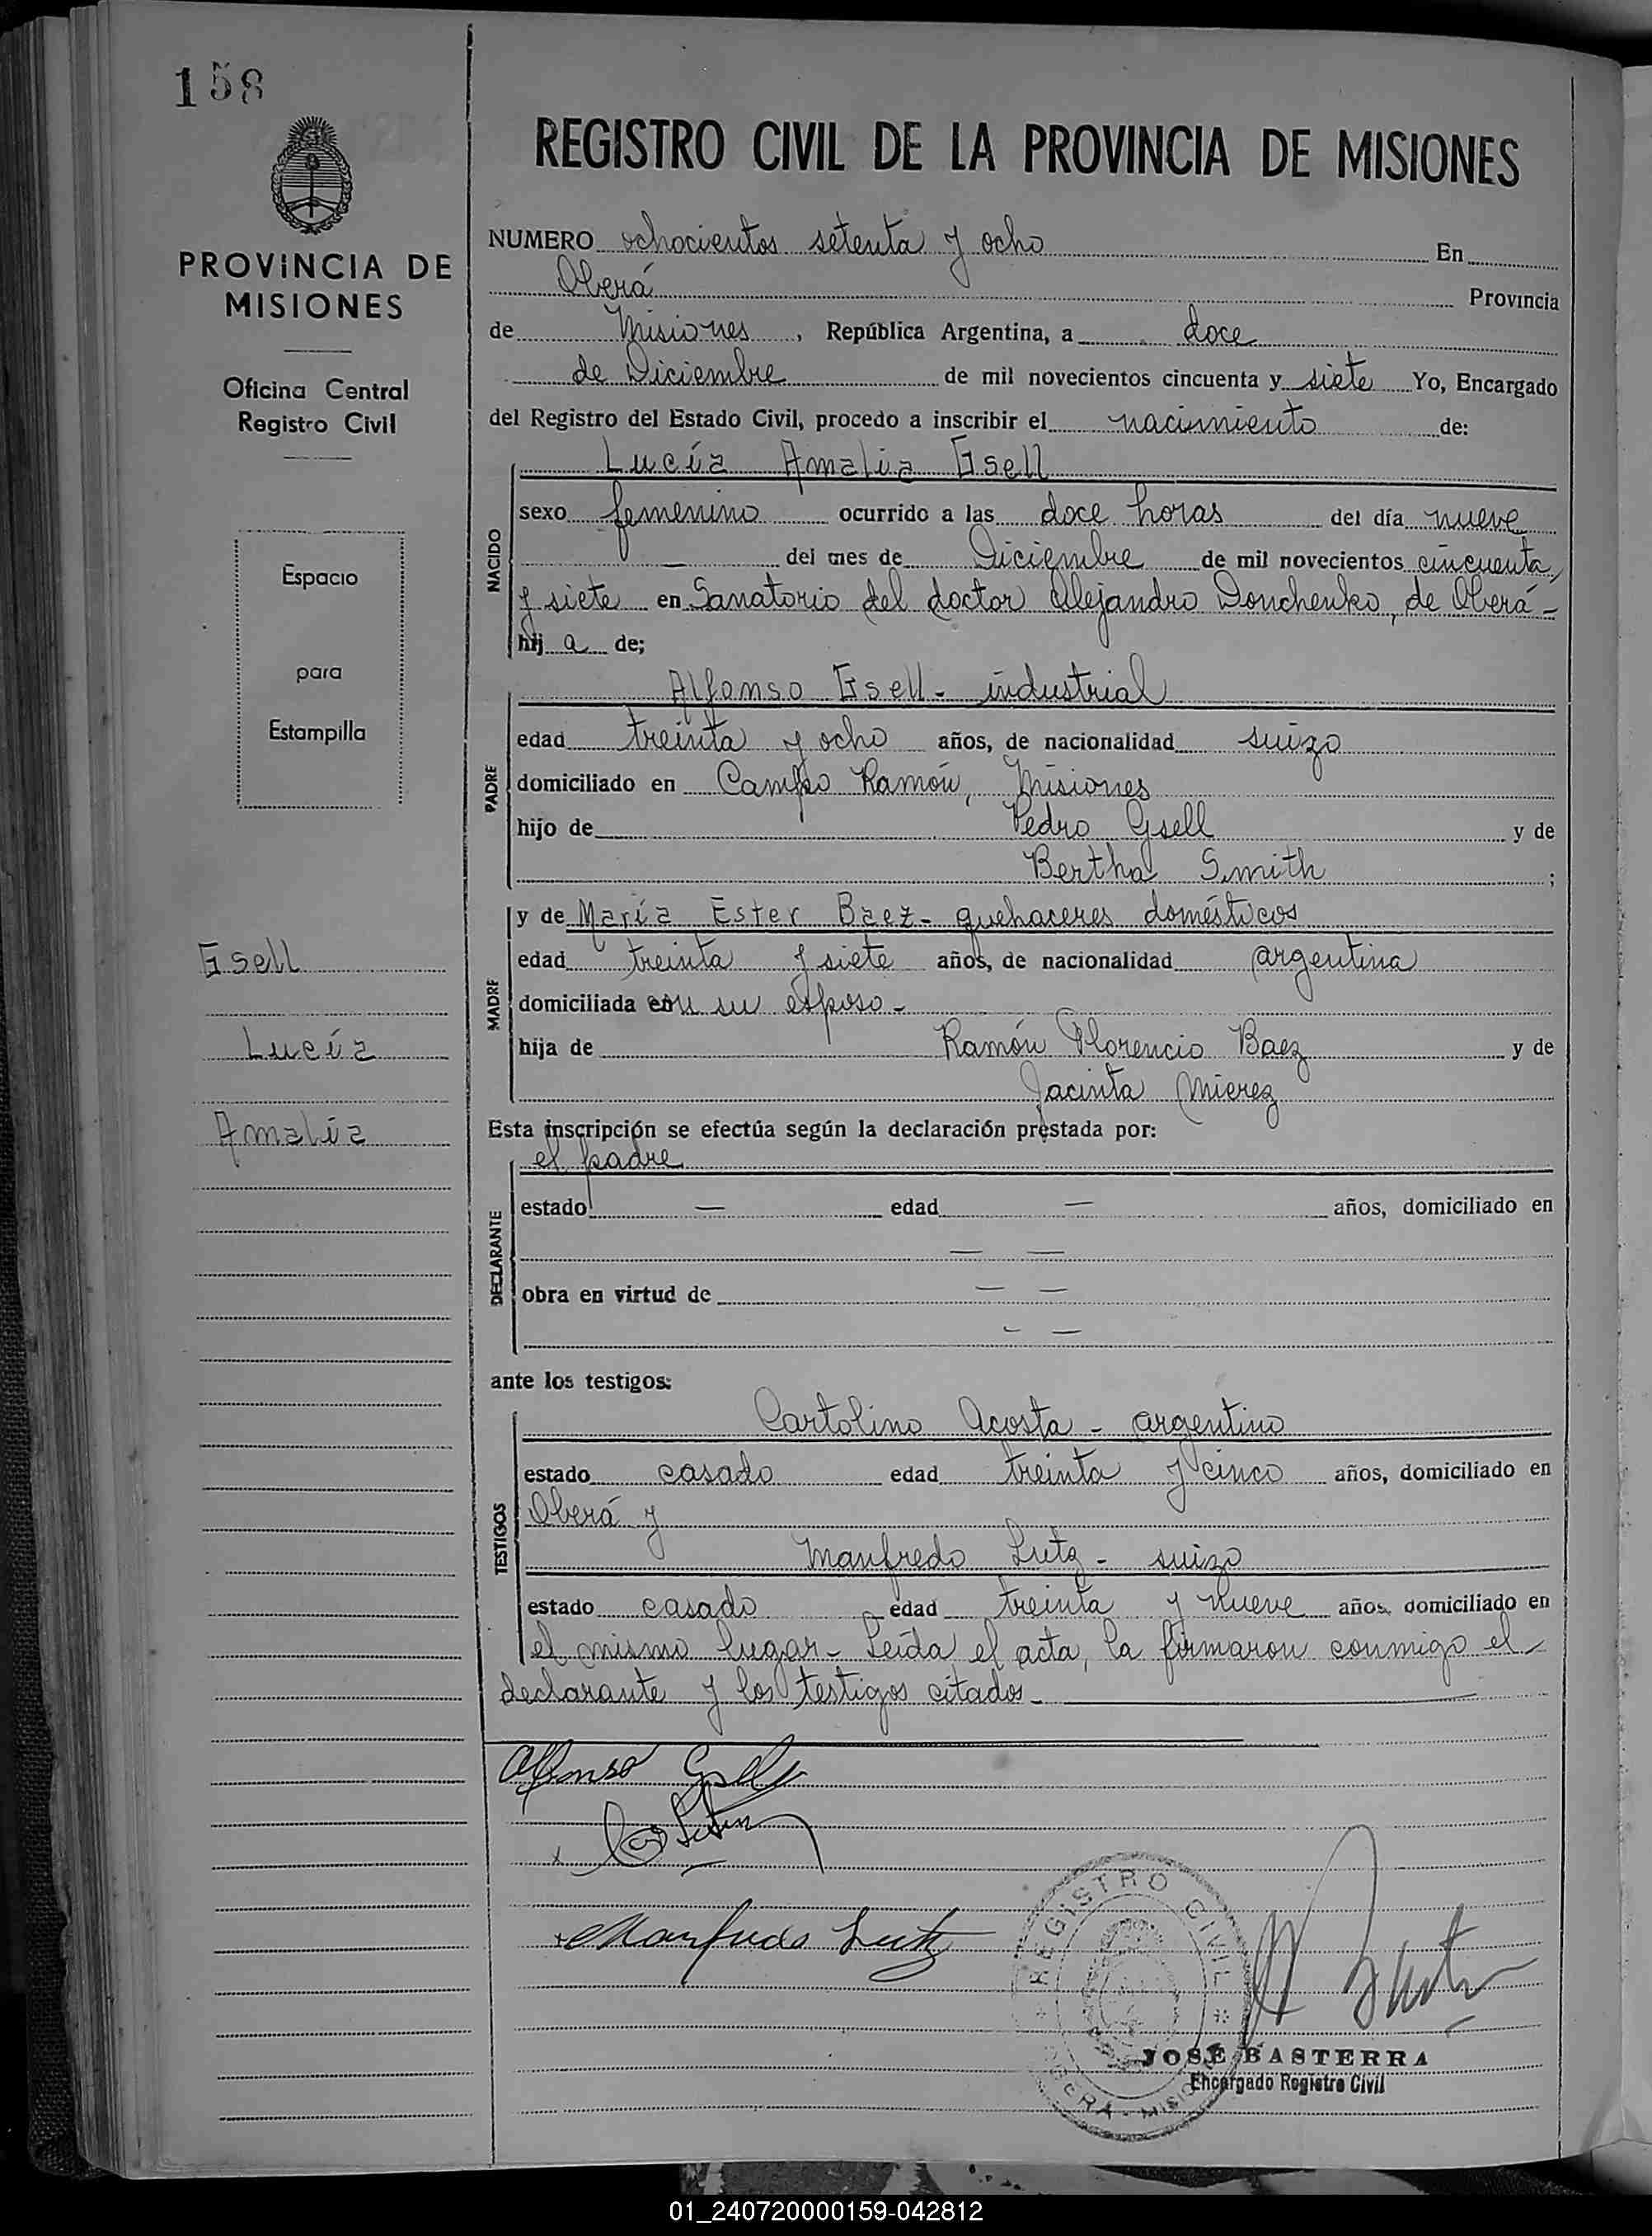 158
PROVINCIA DE
MISIONES
Oficina Central
Registro Civil
Espacio
para
Estampilla
Gsell
Lucía
Amalia
REGISTRO CIVIL DE LA PROVINCIA DE MISIONES
NUMERO ochocientos setenta y ocho En
Oberá Provincia
de Misiones, República Argentina, a doce
de Diciembre de mil novecientos cincuenta y siete Yo, Encargado
del Registro del Estado Civil, procedo a inscribir el nacimiento de:
Lucía Amalia Gsell
NACIDO
sexo femenino ocurrido a las doce horas del día nueve
— del mes de Diciembre de mil novecientos cincuenta
y siete en Sanatorio del doctor Alejandro Donchenko, de Oberá-
hij a de;
Alfonso Gsell- industrial
PADRE
edad treinta y ocho años, de nacionalidad suizo
domiciliado en Campo Ramón, Misiones
hijo de Pedro Gsell y de
Bertha Smith ;
MADRE
y de María Ester Baez- quehaceres domésticos
edad treinta y siete años, de nacionalidad argentina
domiciliada con su esposo-
hija de Ramón Florencio Baez y de
Jacinta Mierez
Esta inscripción se efectúa según la declaración prestada por:
el padre
DECLARANTE
estado — edad — años, domiciliado en
— —
obra en virtud de — —
— —
ante los testigos:
Cartolino Acosta - argentino
TESTIGOS
estado casado edad treinta y cinco años, domiciliado en
Oberá y
Manfredo Lutz - suizo
estado casado edad treinta y nueve años, domiciliado en
el mismo lugar- Leída el acta, la firmaron conmigo el
declarante y los testigos citados-
Alfonso Gsell
Manfredo Lutz
REGISTRO CIVIL
OBERA - MISIONES
JOSE BASTERRA
Encargado Registro Civil
01_240720000159-042812